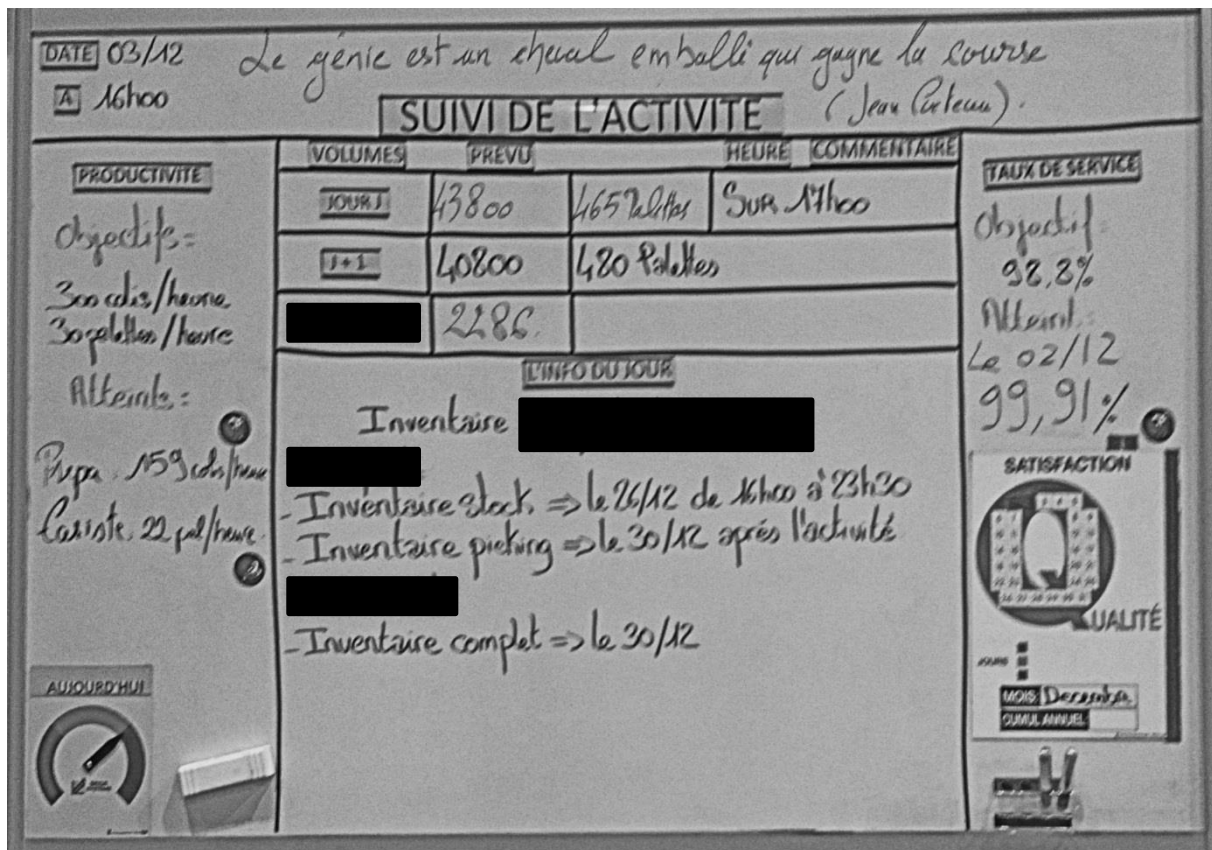 DATE 03/12 Le génie est un cheval emballi qui gagne la course
A 16h00 (Jean Cocteau).
SUIVI DE L'ACTIVITE
PRODUCTIVITE
Objectifs=
300 colis/heure
30 palettes/heure
Atteints=
Prépa. 159 colis/heure
Cariste. 22 pal/heure.
AUJOURD'HUI
VOLUMES PREVU HEURE COMMENTAIRE
JOUR J 43800 465 Palettes SUR 17h00
J+1 40800 480 Palettes
2286.
L'INFO DU JOUR
Inventaire
- Inventaire stock => le 26/12 de 16h00 à 23h30
- Inventaire picking => le 30/12 après l'activité
- Inventaire complet => le 30/12
TAUX DE SERVICE
Objectif:
98,8%
Atteint:
Le 02/12
99,91%
SATISFACTION
QUALITÉ
JOURS
MOIS Decembre
CUMUL ANNUEL